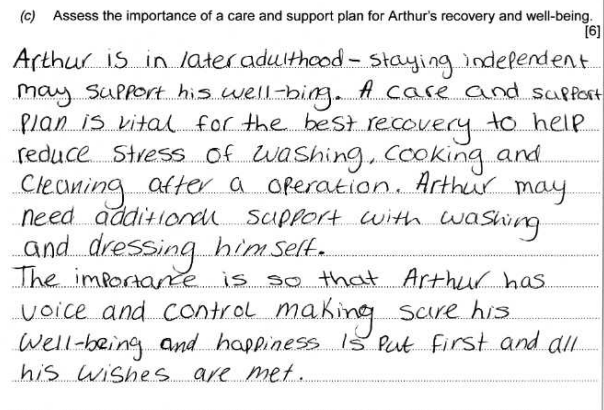 (c) Assess the importance of a care and support plan for Arthur's recovery and well-being.
[6]
Arthur is in later adulthood - staying independent
may support his well-bing. A care and support
plan is vital for the best recovery to help
reduce stress of washing, cooking and
cleaning after a operation. Arthur may
need additional support with washing
and dressing himself.
The importance is so that Arthur has
voice and control making sure his
well-being and happiness is put first and all
his wishes are met.